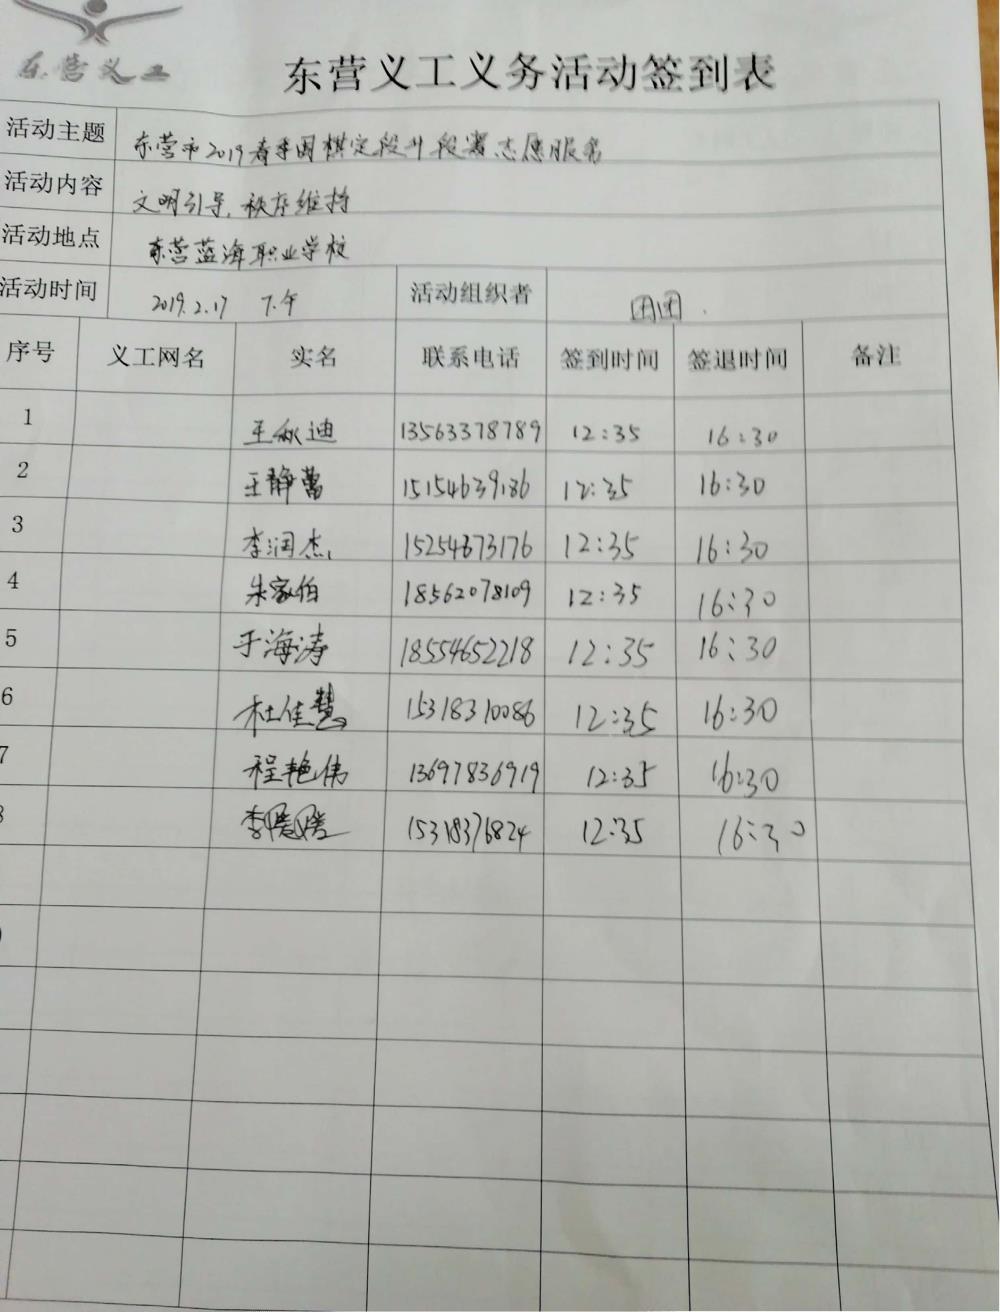 东营义工
东营义工义务活动签到表
活动主题 东营市2019春季围棋定段升段赛志愿服务
活动内容 文明引导,秩序维持
活动地点 东营蓝海职业学校
活动时间 2019.2.17 下午 活动组织者 团团.
序号 义工网名 实名 联系电话 签到时间 签退时间 备注
1 王秋迪 13563378789 12:35 16:30
2 王静蕾 15154639186 12:35 16:30
3 李润杰 15254673176 12:35 16:30
4 朱家伯 18562078109 12:35 16:30
5 于海涛 18554652218 12:35 16:30
6 杜佳慧 15318310086 12:35 16:30
7 程艳伟 13697836919 12:35 16:30
李 15318376824 12:35 16:30